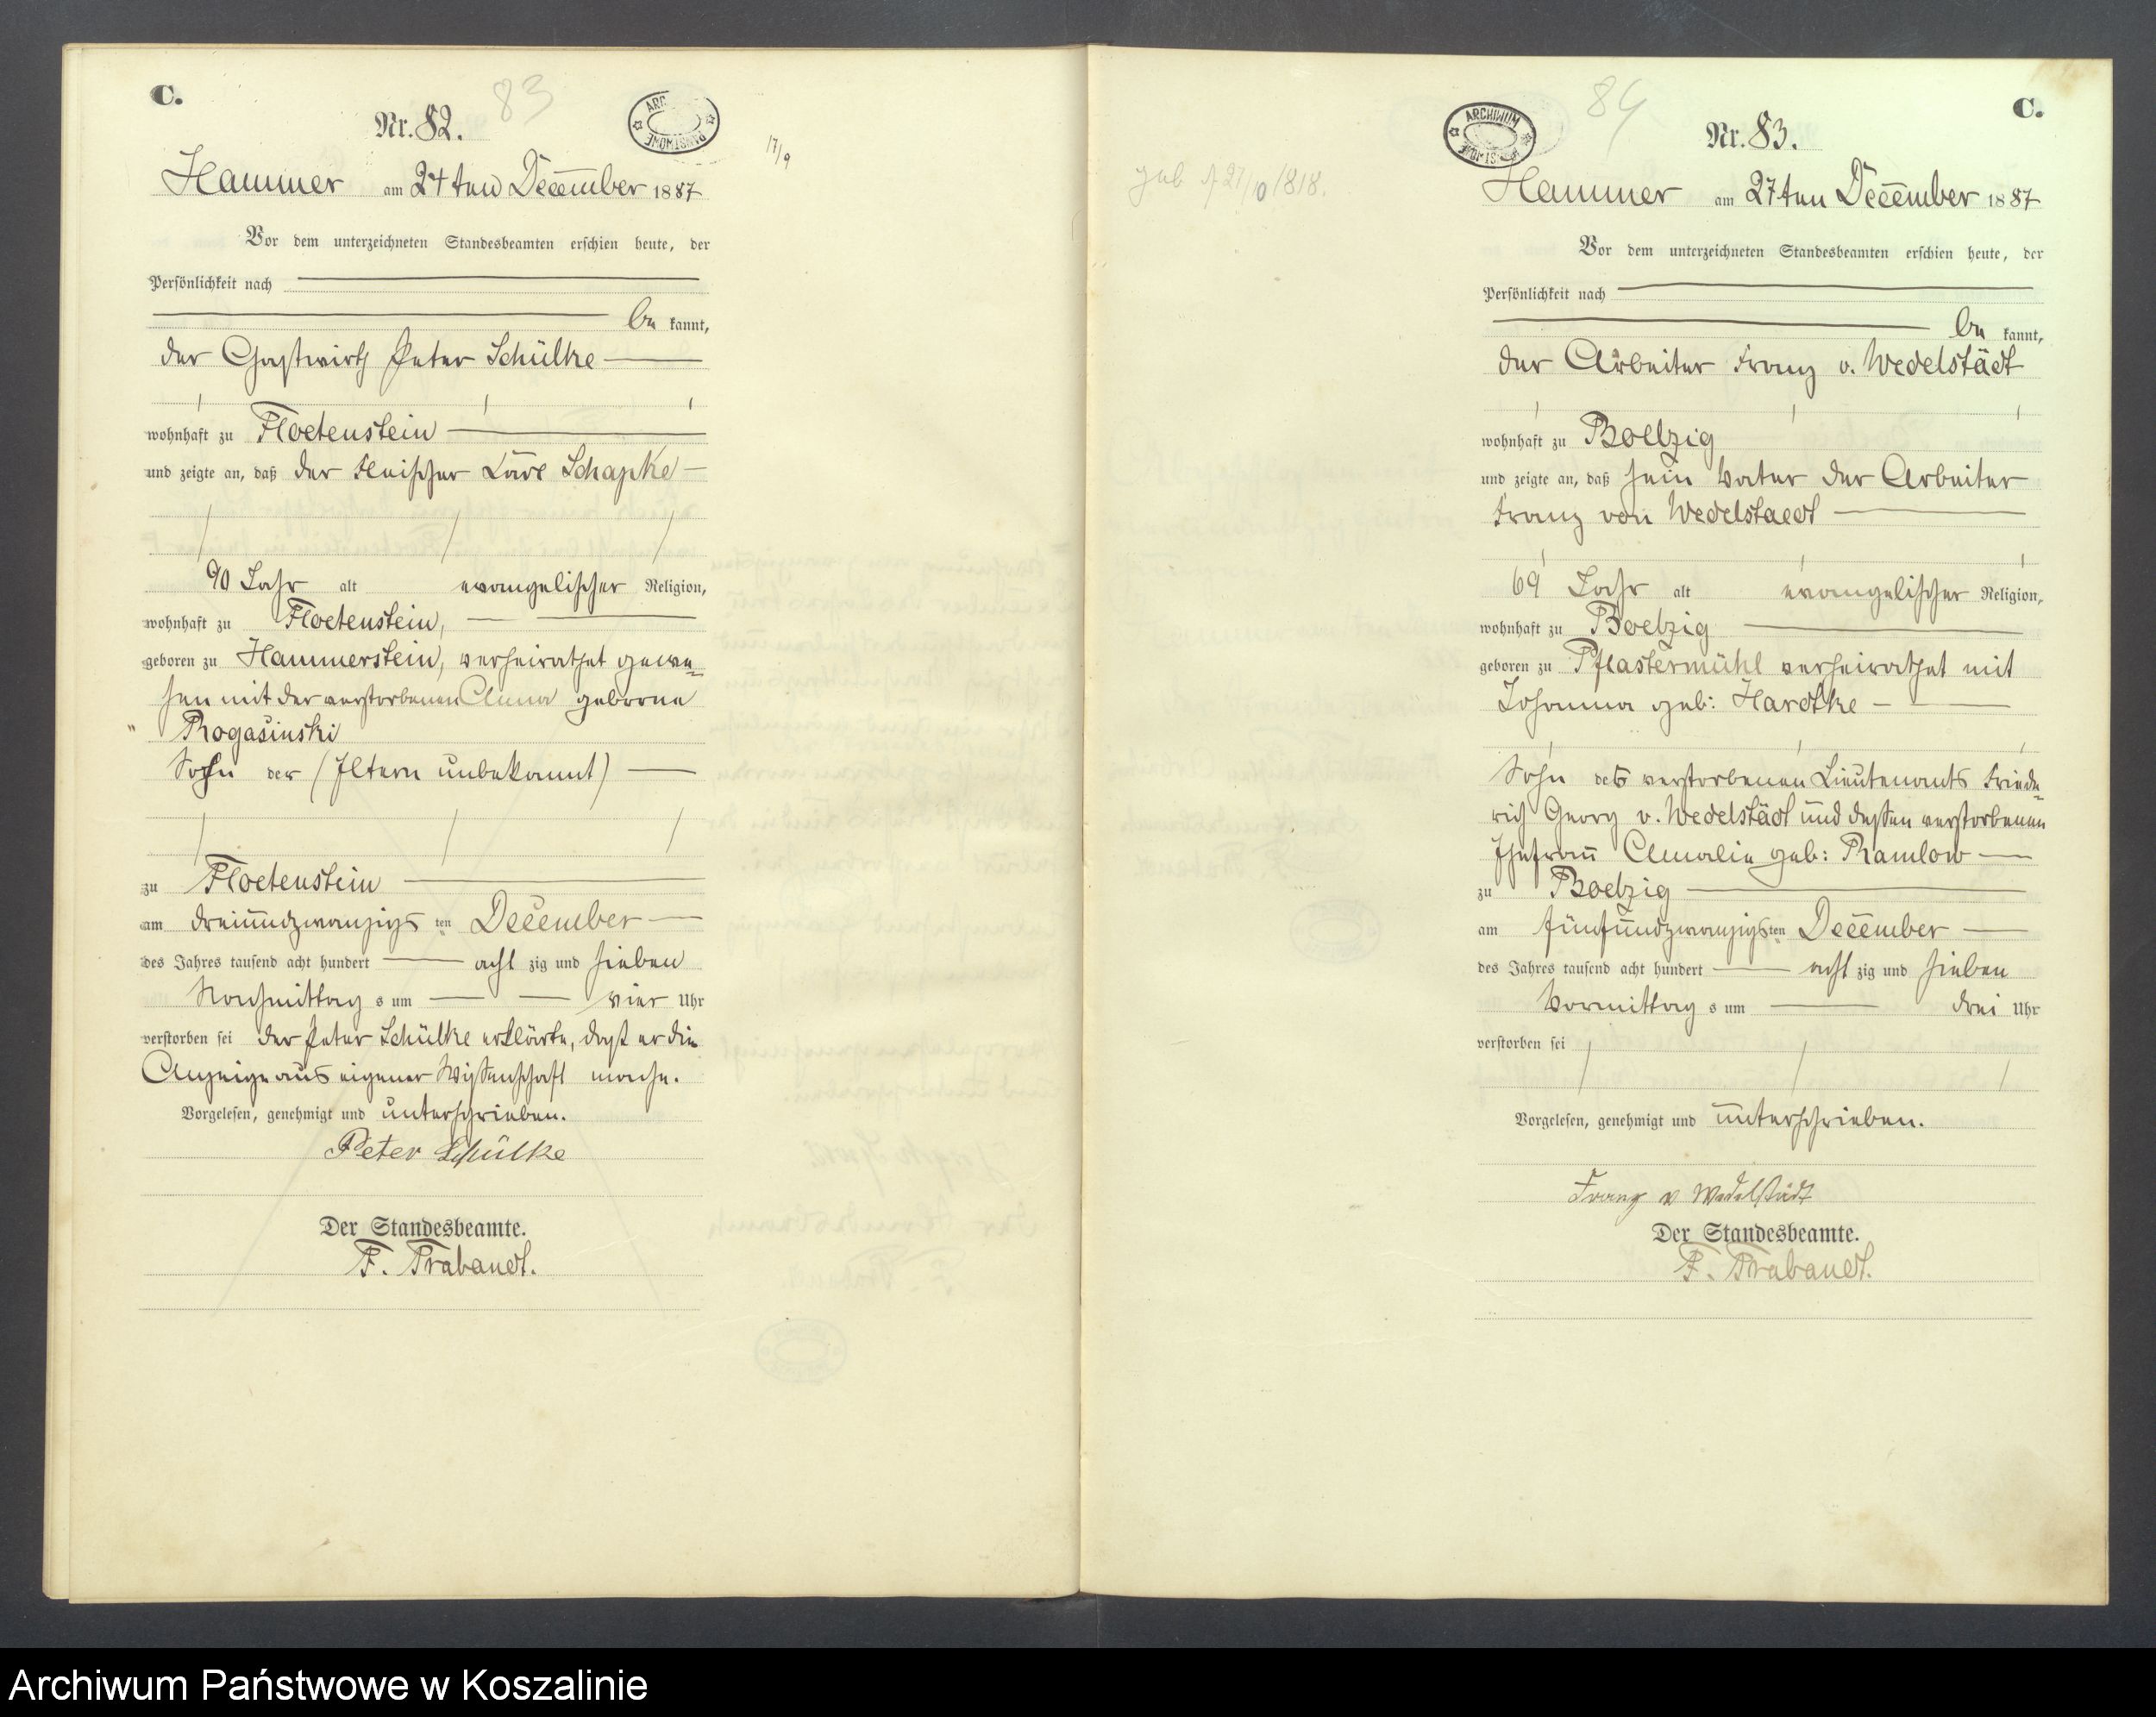 C.
83
Nr. 82.
ARC
PANSTWOWE
17/9
Hammer am 24ten December 1887
Vor dem unterzeichneten Standesbeamten erschien heute, der
Persönlichkeit nach
be kannt,
der Gastwirth Peter Schülke
wohnhaft zu Floetenstein
und zeigte an, daß der Fleischer Carl Schapke
90 Jahr alt evangelischer Religion,
wohnhaft zu Floetenstein,
geboren zu Hammerstein, verheirathet gewe=
sen mit der verstorbenen Anna geborene
Rogasinski
Sohn der (Eltern unbekannt)
zu Floetenstein
am dreiundzwanzigs ten December
des Jahres tausend acht hundert acht zig und sieben
Nachmittag s um vier Uhr
verstorben sei der Peter Schülke erklärte, daß er die
Anzeige aus eigener Wissenschaft mache.
Vorgelesen, genehmigt und unterschrieben.
Peter Schülke
Der Standesbeamte.
F. Trabandt.
84
C.
ARCHIWUM
Nr. 83.
geb 27/10 1818.
Hammer am 27ten December 1887
Vor dem unterzeichneten Standesbeamten erschien heute, der
Persönlichkeit nach
be kannt,
der Arbeiter Franz v. Wedelstädt
wohnhaft zu Boelzig
und zeigte an, daß sein Vater der Arbeiter
Franz von Wedelstaedt
69 Jahr alt evangelischer Religion,
wohnhaft zu Boelzig
geboren zu Pflastermühl verheirathet mit
Johanna geb: Hardtke
Sohn des verstorbenen Lieutenants Friede=
rich Georg v. Wedelstädt und dessen verstorbenen
Ehefrau Amalie geb: Ramlow
zu Boelzig
am fünfundzwanzigs ten December
des Jahres tausend acht hundert acht zig und sieben
Vormittag s um drei Uhr
verstorben sei
Vorgelesen, genehmigt und unterschrieben.
Franz v Wedelstädt
Der Standesbeamte.
F. Trabandt.
Archiwum Państwowe w Koszalinie